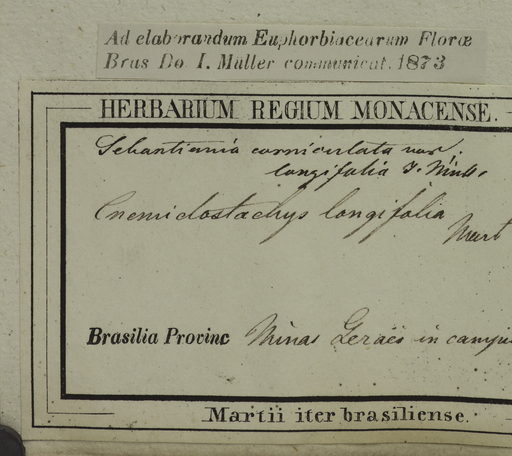 Ad elaborandum Euphorbiacearum Floræ
Bras Do. I. Müller communicat. 1873
HERBARIUM REGIUM MONACENSE.
Sebastiania corniculata var.
longifolia J. Müll.
Cnemidostachys longifolia
Mart
Brasilia Provinc Minas Geraës in campis
Martii iter brasiliense.